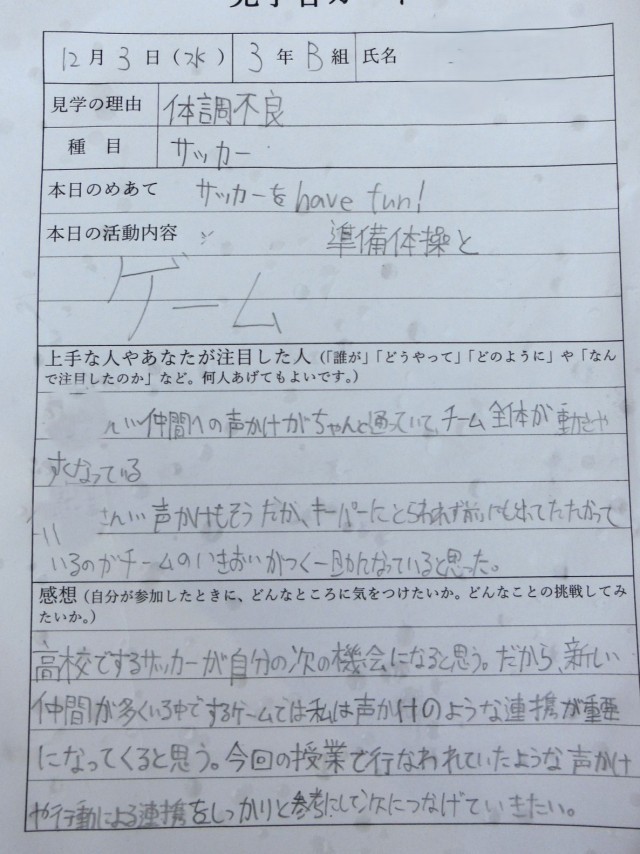 見学者カード
12月3日(水) 3年B組 氏名
見学の理由 体調不良
種目 サッカー
本日のめあて サッカーをhave fun!
本日の活動内容 準備体操と
ゲーム
上手な人やあなたが注目した人(「誰が」「どうやって」「どのように」や「なん
で注目したのか」など。何人あげてもよいです。)
仲間への声かけがちゃんと通っていて、チーム全体が動きや
すくなっている
さん… 声かけもそうだが、キーパーにとらわれず前にも出てたたかって
いるのがチームのいきおいがつく一因かんなっていると思った。
感想(自分が参加したときに、どんなところに気をつけたいか。どんなことの挑戦してみ
たいか。)
高校でするサッカーが自分の次の機会になると思う。だから、新しい
仲間が多くいる中でするゲームでは私は声かけのような連携が重要
になってくると思う。今回の授業で行なわれていたような声かけ
や行動による連携をしっかりと参考にして次につなげていきたい。